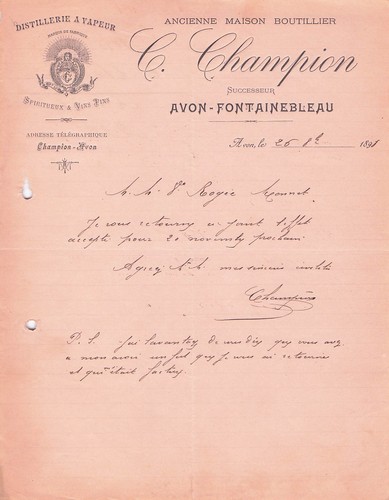 DISTILLERIE A VAPEUR
MARQUE DE FABRIQUE
SPIRITUEUX & VINS FINS
ADRESSE TÉLÉGRAPHIQUE
Champion-Avon
ANCIENNE MAISON BOUTILLIER
C. Champion
SUCCESSEUR
AVON-FONTAINEBLEAU
Avon, le 26 8bre 1891
Vve Rogée
Je vous retourne ci joint l'effet
accepté pour 20 novembre prochain
Agréez mes sincères
Champion
P. S. J'ai l'avantage de vous que vous avez
à mon avoir un fût que je vous ai retourné
et qui était facturé